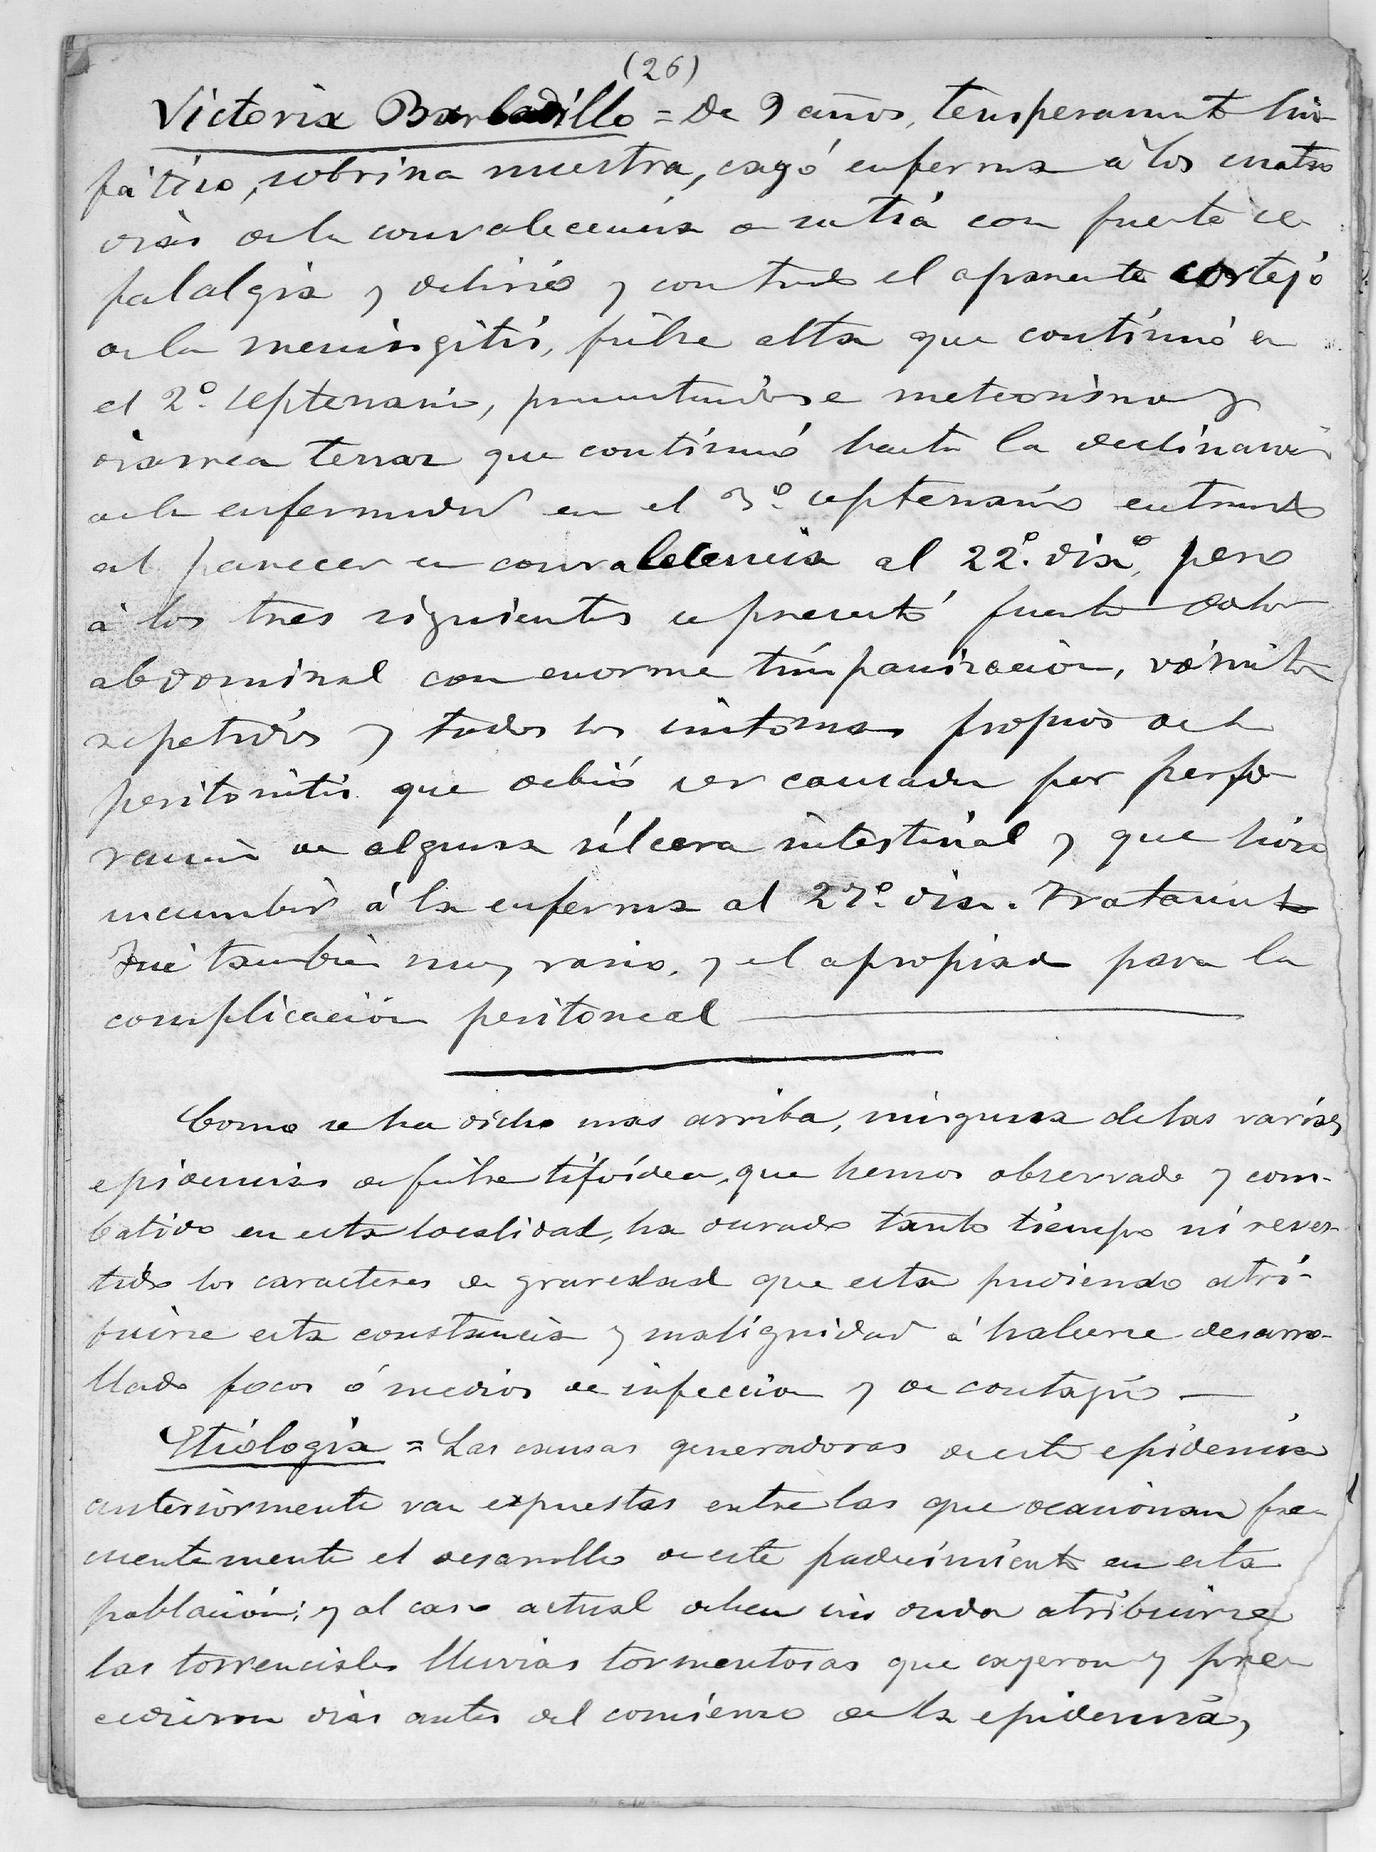 (26)
Victoria Barbadillo = De 9 años, temperamento lin-
fático, sobrina nuestra, cayó enferma á los cuatro
dias de la convalecencia de su tia con fuerte ce
falalgia y delirio y con todo el aparente cortejo
de la meningitis, fiebre alta que continuó en
el 2º. septenario, presentandose meteorismo y
diarrea tenaz que continuó hasta la declinación
de la enfermedad en el 3º. septenario entrando
al parecer en convalecencia al 22º. dia, pero
á los tres siguientes se presentó fuerte dolor
abdominal con enorme timpanización, vómitos
repetidos y todos los sintomas propios de la
peritonitis que debió ser causada por perfo
ración de alguna úlcera intestinal y que hizo
sucumbir á la enferma al 27º. dia. Tratamiento
Fué tambien muy vario, y el apropiado para la
complicación peritoneal
Como se ha dicho mas arriba, ninguna de las varias
epidemias de fiebre tifóidea, que hemos observado y com-
batido en esta localidad, ha durado tanto tiempo ni reves-
tido los caracteres de gravedad que esta pudiendo atri-
buirse esta constancia y malignidad á haberse desarro-
llado focos ó medios de infeccion y de contagio —
Etiologia = Las causas generadoras de esta epidemia
anteriormente van expuestas entre las que ocasionan fre-
cuentemente el desarrollo de este padecimiento en esta
población; y al caso actual deben sin duda atribuirse
las torrenciales lluvias tormentosas que cayeron y pre-
cedieron dias antes del comienzo de la epidemia,